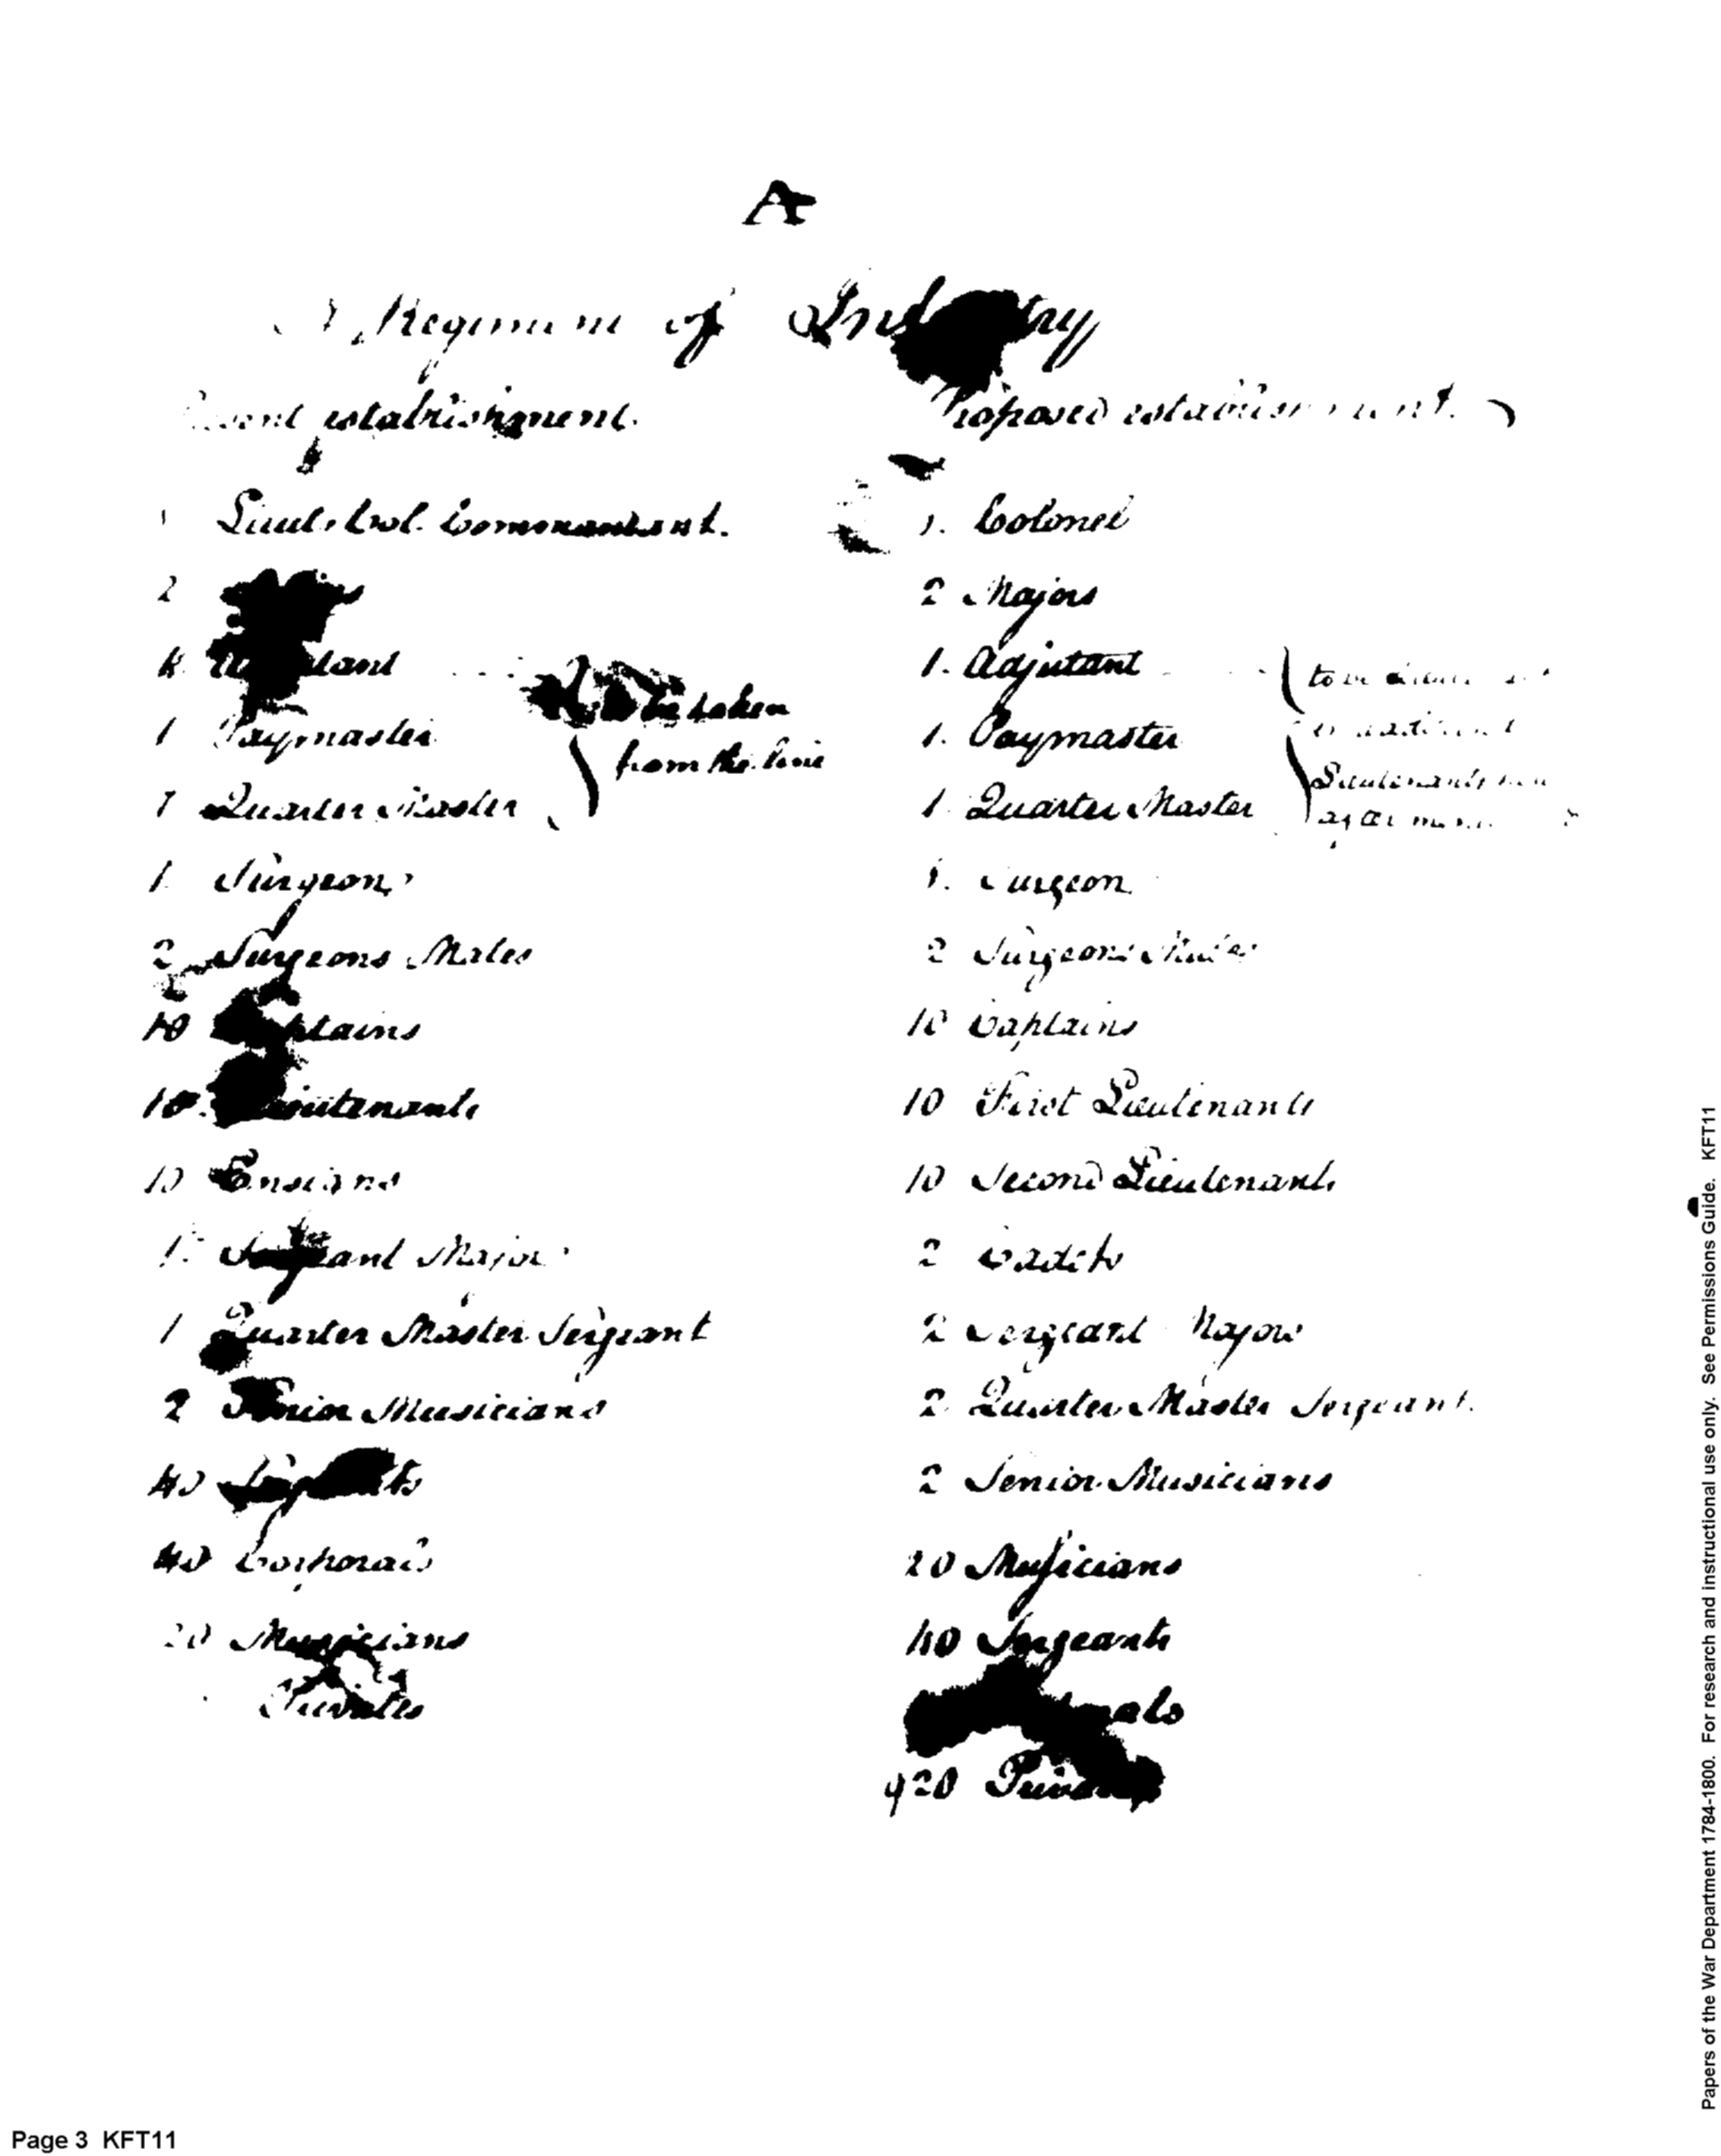 A
Regiment of Infantry
establishment.
Proposed establishment.
1 Lieut. Col. Commandant.
2
1 Paymaster
1 Quarter Master
be taken
from the line
1. Surgeon
2 Surgeons Mates
10 Captains
10. Lieutenants
10 Ensigns
1. Sergeant Major
1 Quarter Master Sergeant
2 Senior Musicians
40 Sergeants
40 Corporals
20 Musicians
Privates
1. Colonel
2 Majors
1. Adjutant
1. Paymaster
1. Quarter Master
to be
Lieutenants
1. Surgeon
2 Surgeons Mates
10 Captains
10 First Lieutenants
10 Second Lieutenants
2 Cadets
2 Sergeant Majors
2 Quarter Master Sergeant.
2 Senior Musicians
20 Musicians
40 Sergeants
920
Papers of the War Department 1784-1800. For research and instructional use only. See Permissions Guide. KFT11
Page 3 KFT11